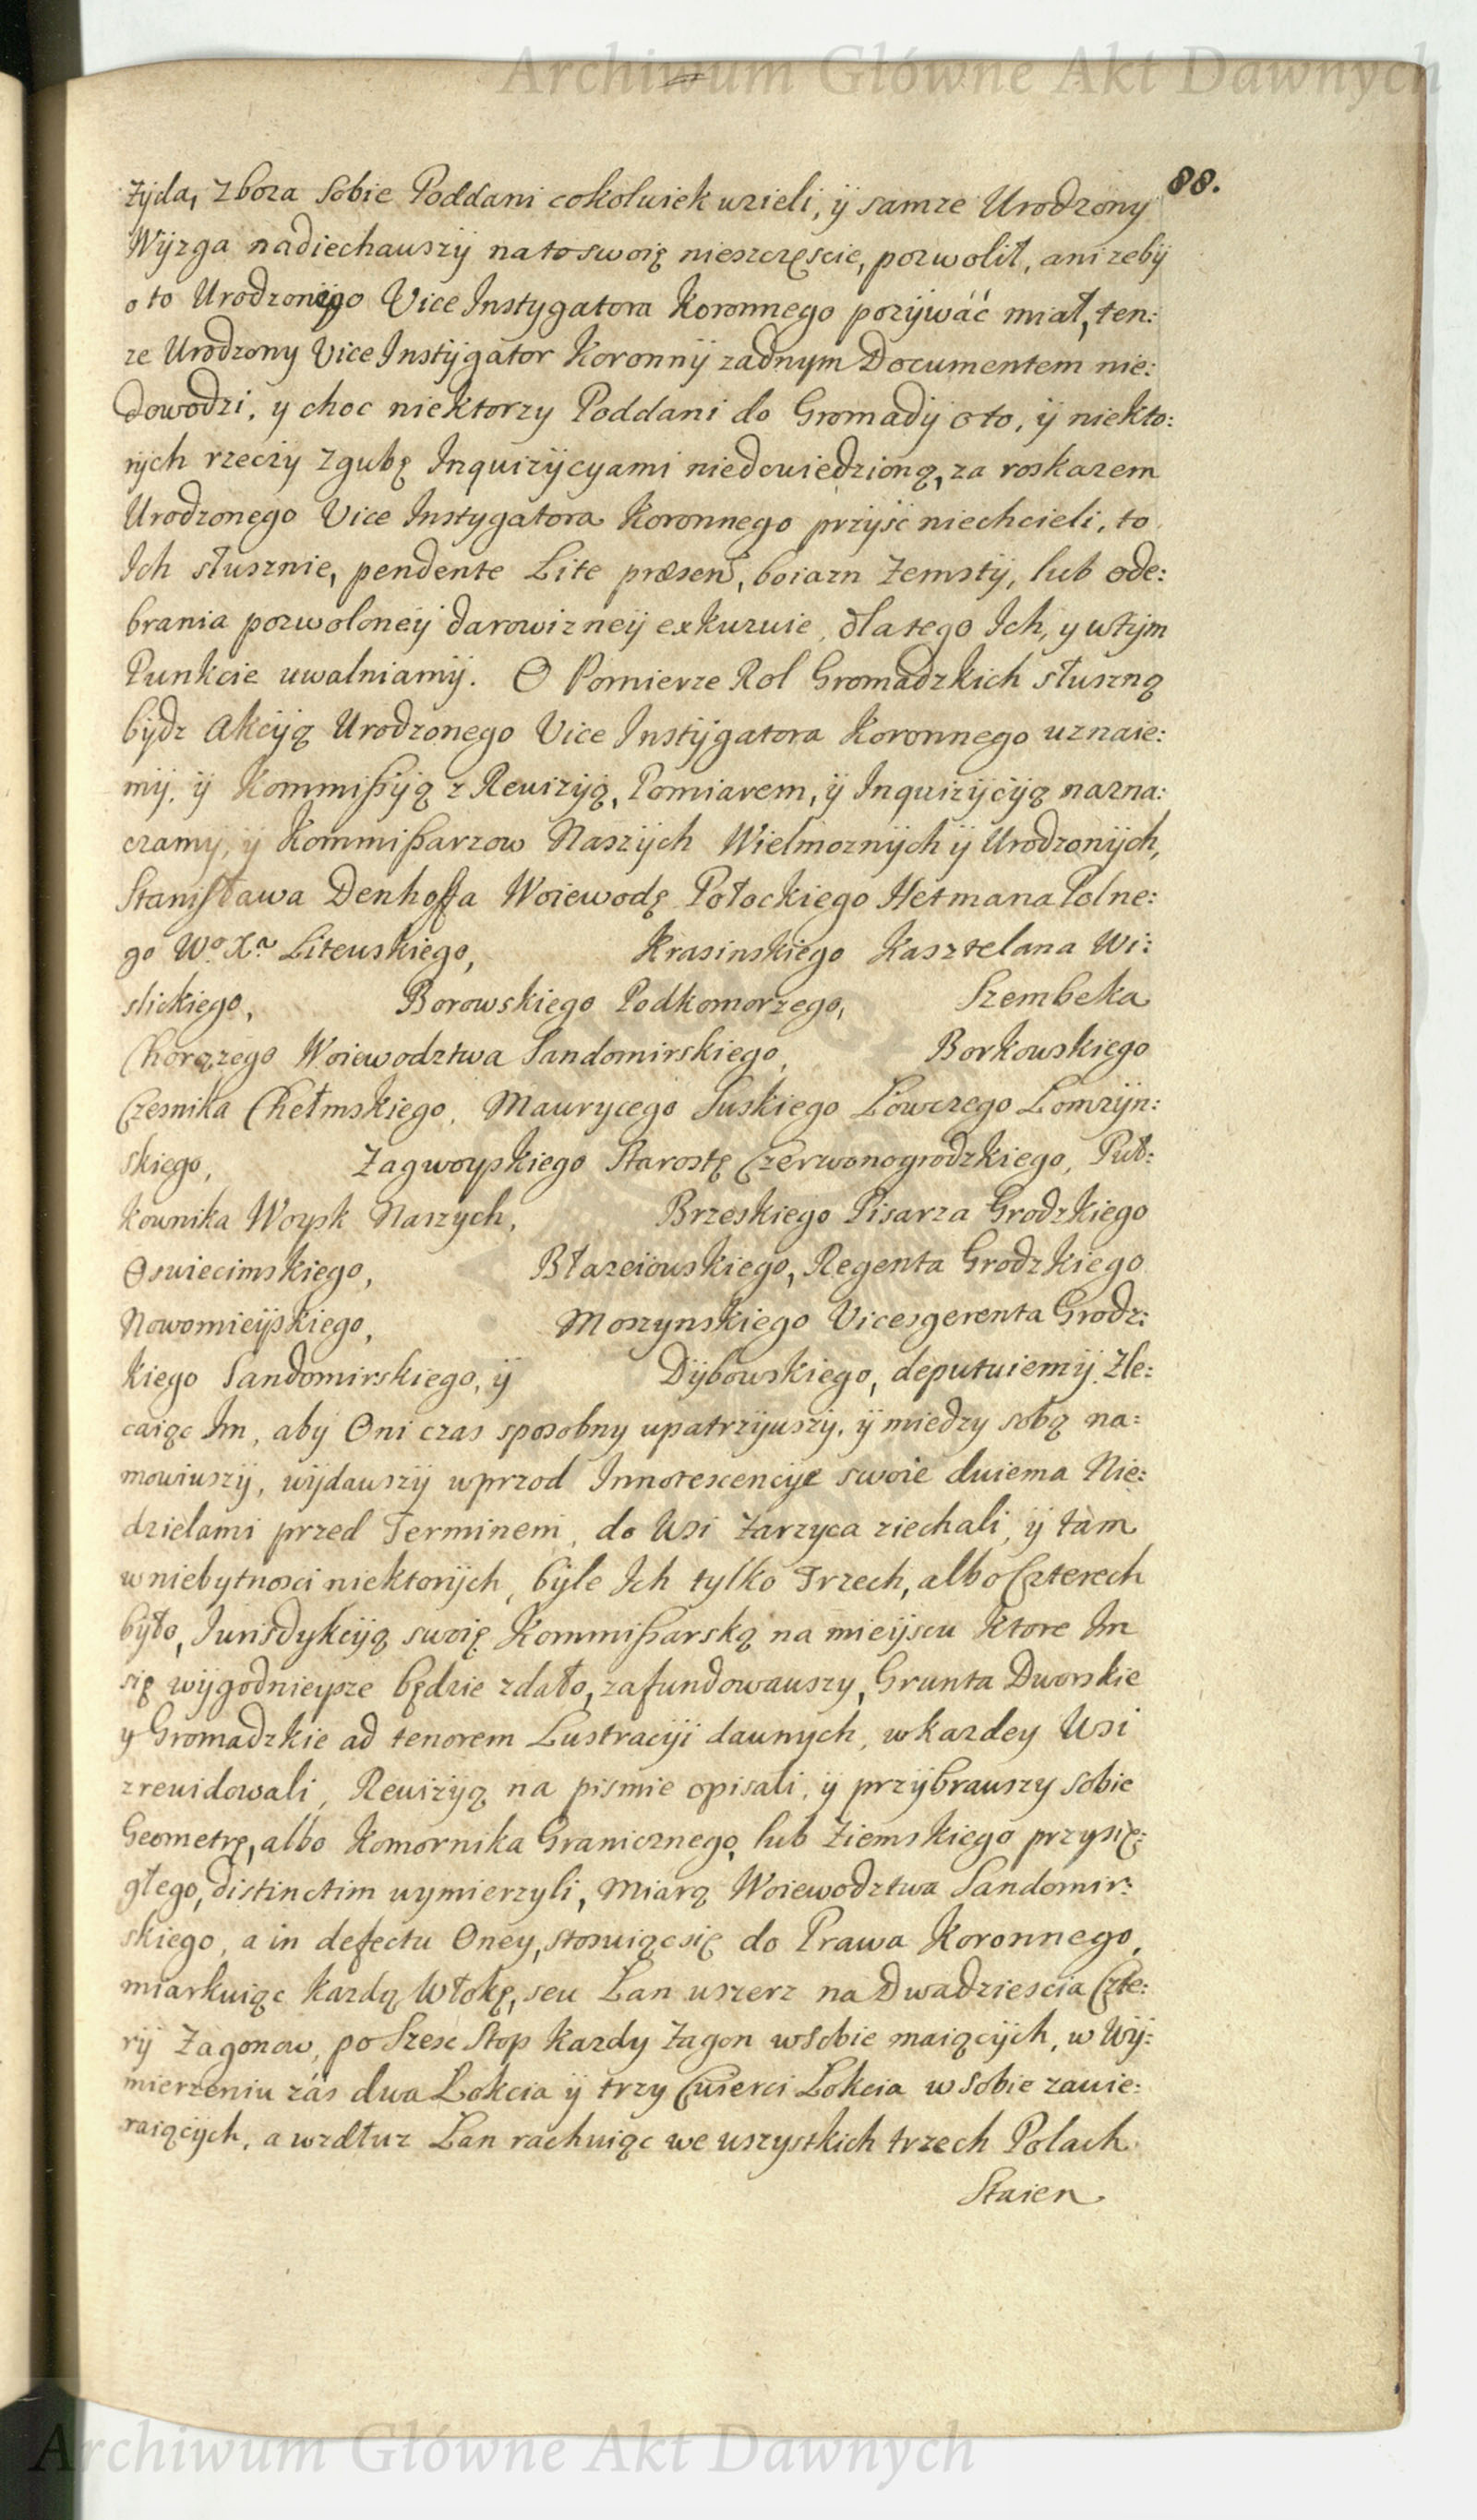 Archiwum Główne Akt Dawnych
88.
Zyda, Zboza Sobie Poddani cokolwiek wzieli, ÿ samze Urodzony
Wÿzga nadiechauszÿ na to swoię nieszczęscie, pozwolił, ani zebÿ
o to Urodzonego Vice Instygatora Koronnego pozÿwáć miał, ten:
ze Urodzony Vice Instÿgator Koronnÿ zadnym Documentem nie:
dowodzi, y choc niektorzy Poddani do Gromadÿ o to, ÿ niekto:
rÿch rzeczÿ Zgubę Inquizÿcyami niedowiedzioną, za roskazem
Urodzonego Vice Instygatora Koronnego przÿsć niechcieli, to
Ich słusznie, pendente Lite præsen, boiazn Zemstÿ, lub ode:
brania pozwoloneÿ darowizneÿ exkuzuie, dlatego Ich, y wtÿm
Punkcie uwalniamÿ. O Pomierze Rol Gromadzkich słuszną
bÿdz Akcÿą Urodzonego Vice Instÿgatora Koronnego uznaie:
mÿ, ÿ Kommißÿą z Rewizÿą, Pomiarem, ÿ Inquizÿcÿą nazna:
czamy, ÿ Kommißarzow Naszÿch Wielmoznÿch ÿ Urodzonÿch,
Stanisława Denhoffa Woiewodę Połockiego Hetmana Polne:
go Wo. Xa. Litewskiego, Krasinskiego Kasztelana Wi:
slickiego, Borowskiego Podkomorzego, Szembeka
Chorązego Woiewodztwa Sandomirskiego, Borkowskiego
Czesnika Chełmskiego, Maurycego Suskiego Łowczego Lomzÿn:
skiego, Zagwoyskiego Starostę Czerwonogrodzkiego, Puł:
kownika Woysk Naszych, Brzeskiego Pisarza Grodzkiego
Oswiecimskiego, Błazeiowskiego, Regenta Grodzkiego
Nowomieÿskiego, Moszynskiego Vicesgerenta Grodz:
kiego Sandomirskiego, ÿ Dÿbowskiego, deputuiemÿ. Zle:
caiąc Im, aby Oni czas sposobny upatrzÿwszÿ, ÿ miedzy sobą na:
mowiwszÿ, wÿdawszÿ wprzod Innotescencÿe swoie dwiema Nie:
dzielami przed Terminem, do Wsi Zarzyca ziechali, ÿ tam
w niebytnosci niektorÿch, bÿle Ich tylko Trzech, albo Czterech
było, Iurisdykcÿą swoię Kommißarską na mieÿscu ktore Im
się wÿgodnieysze będzie zdało, zafundowawszy, Grunta Dworskie
y Gromadzkie ad tenorem Lustracÿi dawnych, w kazdey Wsi
zrewidowali, Rewizÿą na pismie opisali, ÿ przÿbrawszy sobie
Geometrę, albo Komornika Granicznego, lub Ziemskiego przysię:
głego, distinctim wymierzyli, Miarą Woiewodztwa Sandomir:
skiego, a in defectu Oney, stosuiąc się do Prawa Koronnego,
miarkuiąc kazdą Włokę, seu Łan wszerz na Dwadziescia Czte:
rÿ Zagonow, po Szesc Stop kazdy Zagon wsobie maiącÿch, w Wÿ:
mierzeniu zás dwa Łokcia ÿ trzy Cwierci Łokcia w sobie zawie:
raiącÿch, a wzdłuz Łan rachuiąc we wszystkich trzech Polach
Staien
Archiwum Główne Akt Dawnych